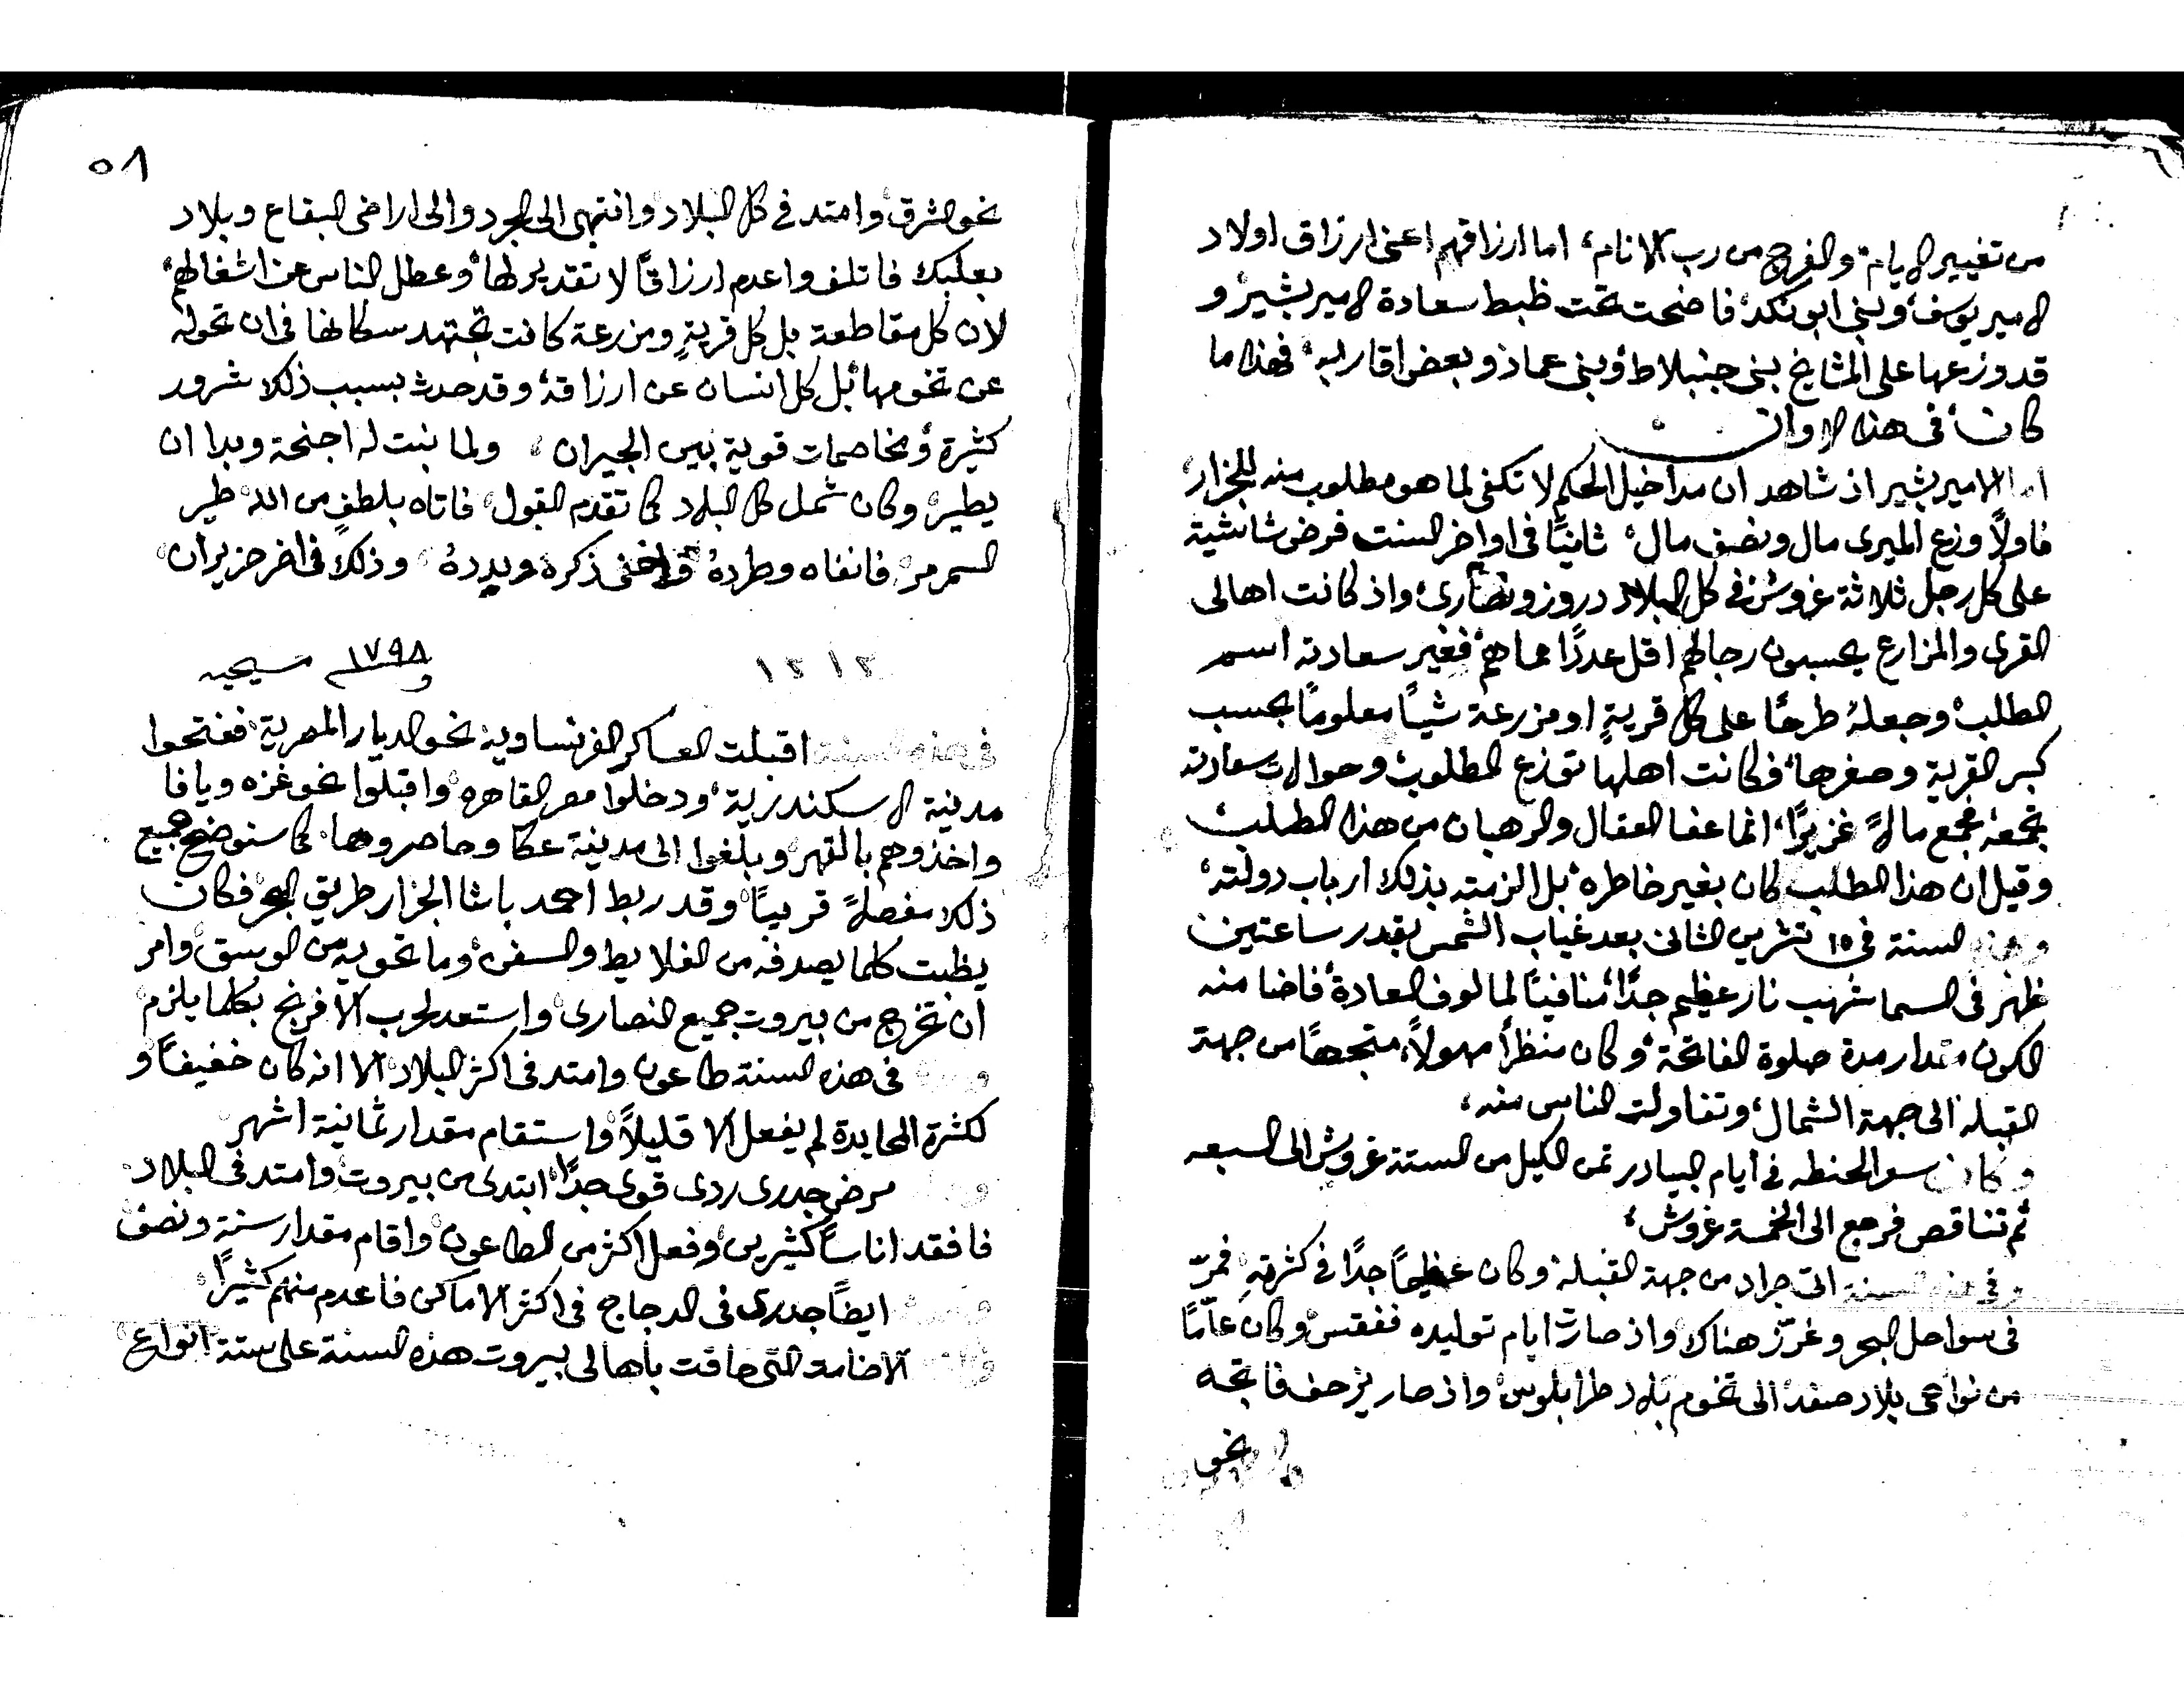 من تغيير الايام، والفرج من رب الانام، اما ارزاقهم اعني ارزاق اولاد
الامير يوسف، وبني ابو نكد، فاضحت تحت ظبط سعادة الامير بشير، و
قد وزعها على المشايخ بني جنبلاط، وبني عماد وبعض اقاربه، فهذا ما
كان في هذا الاوان
اما الامير بشير اذ شاهد ان مداخيل الحكم لا تكفي لما هو مطلوب منه للجزار،
فاولاً وزع الميري مال ونصف مال، ثانيًا في اواخر السنت فرض شاشية
على كل رجل ثلاثة غروش في كل البلاد دروز ونصارى، واذ كانت اهالي
القرى والمزارع يحسبون رجالهم اقل عددًا مما هم، فغير سعادته اسم
الطلب، وجعله طرحًا على كل قريةٍ او مزرعة شيًا معلومًا بحسب
كبر القرية وصغرها، فكانت اهلها توزع المطلوب، وحوالات سعادته
تجمعه فجمع مالاً غزيرًا، انما عفا العقال والرهبان من هذا الطلب
وقيل ان هذا الطلب كان بغير خاطره، بل الزمته بذلك ارباب دولته،
السنة في ١٥ تشرين الثاني بعد غياب الشمس بقدر ساعتين
ظهر في السما شهب نار عظيم جدًا، منافيًا لمالوف العادة، فاضا منه
الكون مقدار مدة صلوة الفاتحة، وكان منظرًا مهولاً، متجهًا من جهة
القبلة الى جهة الشمال، وتفاولت الناس منه،
وكان سعر الحنطه في ايام البيادر ثمن الكيل من الستة غروش الى السبعه
ثم تناقص فرجع الى الخمسة غروش،
وفي هذه السنة اتى جراد من جهة القبلة وكان عظيمًا جدًا في كثرتهِ، فمرّ
في سواحل البحر وغرّز هناك، واذ صارت ايام توليده ففقس، وكان عامًا
من نواحي بلاد صفد، الى تخوم بلاد طرابلوس، واذ صار يزحف فاتجه
نحو
٥٨
نحو الشرق، وامتد في كل البلاد، وانتهى الى الجرد والى اراضي البقاع وبلاد
بعلبك فاتلف واعدم ارزاقًا لا تقدير لها، وعطل الناس عن اشغالهم،
لان كل مقاطعة بل كل قريةٍ ومزرعة كانت تجتهد سكانها في ان تحوله
عن تخومها، بل كل انسان عن ارزاقه، وقد حدث بسبب ذلك شرور
كثيرة، ومخاصمات قوية بين الجيران، ولما نبت له اجنحة وبدا ان
يطير، وكان شمل كل البلاد كما تقدم القول، فاتاه بلطفٍ من الله، طير
السمرمر، فانفاه وطرده، واخفى ذكره وبدده، وذلك في اخر حزيران
١٢١٣
١٧٩٨ مسيحيه
في هذه السنة اقبلت العساكر الفرنساوية نحو الديار المصرية، ففتحوا
مدينة الاسكندرية، ودخلوا مصر القاهره، واقبلوا نحو غزه ويافا
واخذوهم بالقهر، وبلغوا الى مدينة عكا وحاصروها، كما سنوضح جميع
ذلك مفصلاً قريبًا، وقد ربط احمد باشا الجزار طريق البحر فكان
يظبت كلما يصدفه من الغلايط والسفن، وما تحويه من الوسق، وامر
ان تخرج من بيروت جميع النصارى، واستعد لحرب الافرنج بكلما يلزم
في هذه السنة طاعون وامتد في اكثر البلاد، الا انه كان خفيفًا، و
لكثرة المحايدة لم يفعل الا قليلاً، واستقام مقدار ثمانية اشهر
مرض جدري ردي قوي جدًا، ابتدى من بيروت، وامتد في البلاد
فافقد اناسًا كثيرين، وفعل اكثر من الطاعون، واقام مقدار سنة ونصف
ايضًا جدري في الدجاج في اكثر الاماكن فاعدم منهم كثيرًا،
التي حاقت باهالي بيروت هذه السنة على ستة انواع